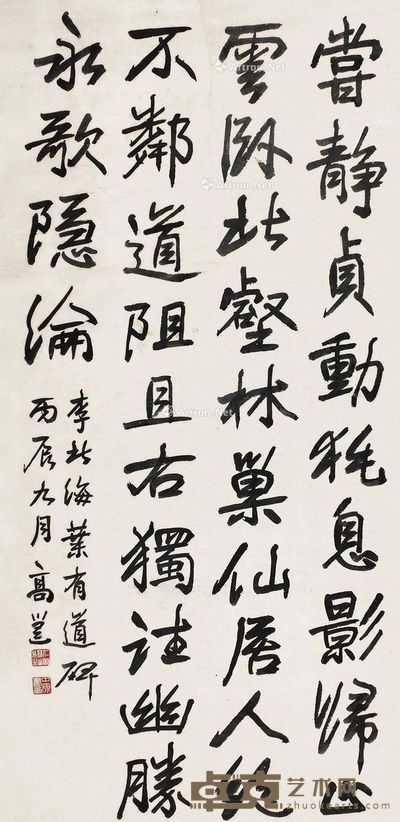 嘗靜貞動耗息影歸山
雲卧北壑林巢仙居人絕
不鄰道阻且右獨往幽勝
永歌隱淪
李北海葉有道碑
丙辰九月高邕
Artron.Net
卓克艺术网
www.zhuokearts.com